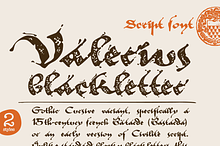 Script font
Valerius
blackletter
Gothic Cursive variant, specifically a
15th-century french Bâtarde (Bastarda)
or an early version of Civilité script.
2
styles